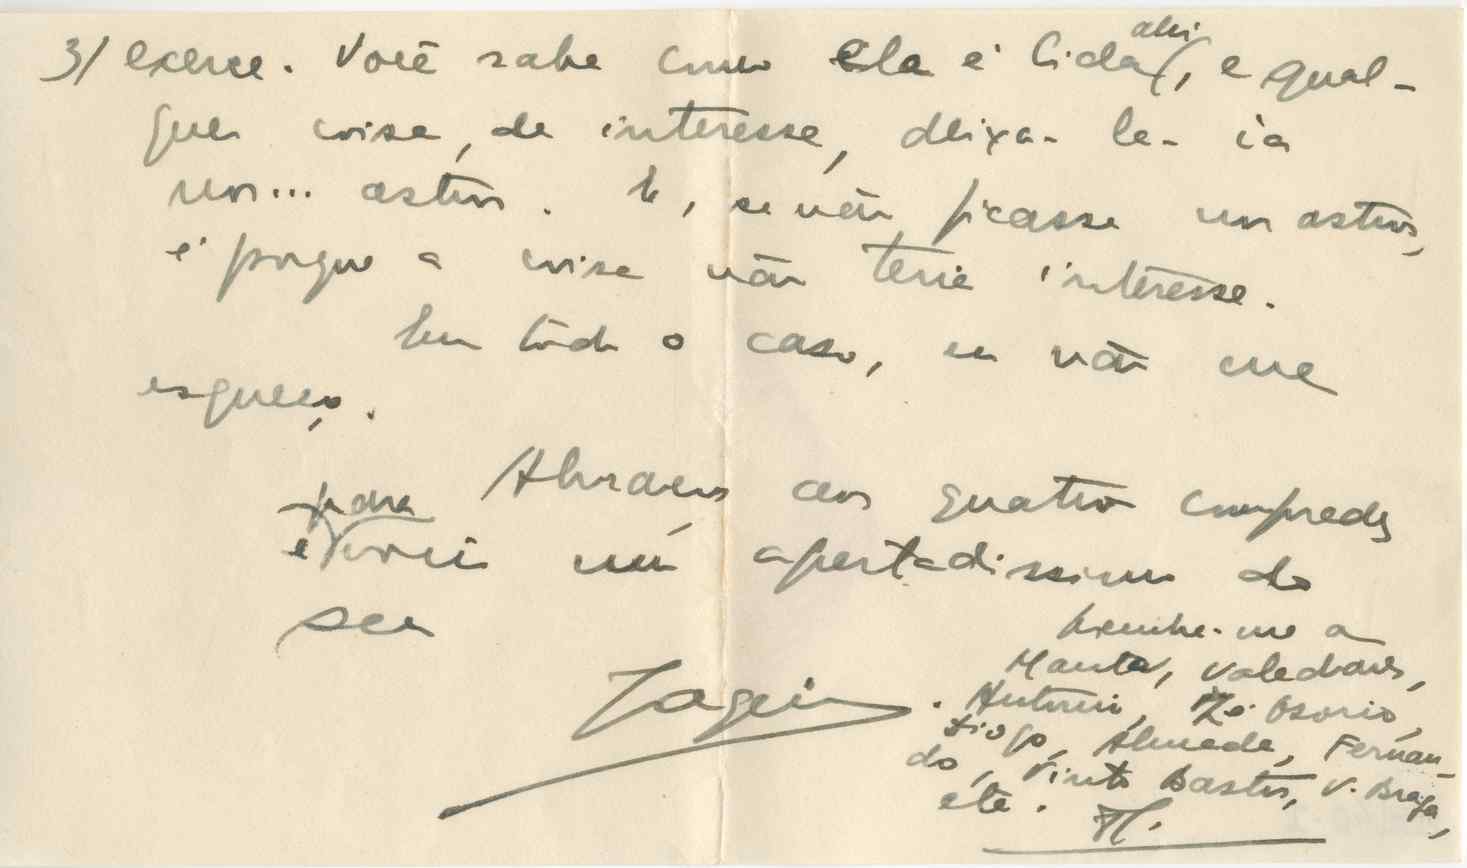 ahi
3/ exerce. Você sabe como ela é lida, e qual-
quer coisa, de interesse, deixa-
uns... astros. E, se não ficasse uns astros,
é porque a coisa não teria interesse.
Em tôdo o caso, eu não me
esqueço.
Abraços aos quatro compadres
para
e Você um apertadissimo do
seu
lembre-me a
Manta, Valadares,
António, Zé Osorio,
Diogo, Almada, Fernan-
do, Pinto Bastos, V. Braga,
etc.